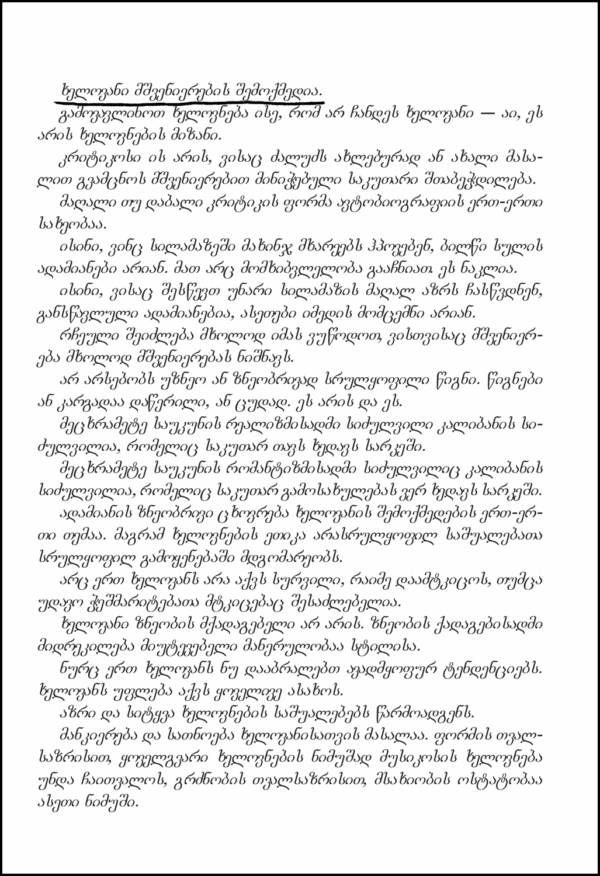 ხელოვანი მშვენიერების შემოქმედია.
გამოვავლინოთ ხელოვნება ისე, რომ არ ჩანდეს ხელოვანი — აი, ეს
არის ხელოვნების მიზანი.
კრიტიკოსი ის არის, ვისაც ძალუძს ახლებურად ან ახალი მასა-
ლით გვამცნოს მშვენიერებით მინიჭებული საკუთარი შთაბეჭდილება.
მაღალი თუ დაბალი კრიტიკის ფორმა ავტობიოგრაფიის ერთ-ერთი
სახეობაა.
ისინი, ვინც სილამაზეში მახინჯ მხარეებს ჰპოვებენ, ბილწი სულის
ადამიანები არიან. მათ არც მომხიბვლელობა გააჩნიათ. ეს ნაკლია.
ისინი, ვისაც შესწევთ უნარი სილამაზის მაღალ აზრს ჩასწვდნენ,
განსწავლული ადამიანებია, ასეთები იმედის მომცემნი არიან.
რჩეული შეიძლება მხოლოდ იმას ვუწოდოთ, ვისთვისაც მშვენიერ-
ება მხოლოდ მშვენიერებას ნიშნავს.
არ არსებობს უზნეო ან ზნეობრივად სრულყოფილი წიგნი. წიგნები
ან კარგადაა დაწერილი, ან ცუდად. ეს არის და ეს.
მეცხრამეტე საუკუნის რეალიზმისადმი სიძულვილი კალიბანის სი-
ძულვილია, რომელიც საკუთარ თავს ხედავს სარკეში.
მეცხრამეტე საუკუნის რომანტიზმისადმი სიძულვილიც კალიბანის
სიძულვილია, რომელიც საკუთარ გამოსახულებას ვერ ხედავს სარკეში.
ადამიანის ზნეობრივი ცხოვრება ხელოვანის შემოქმედების ერთ-ერ-
თი თემაა. მაგრამ ხელოვნების ეთიკა არასრულყოფილ საშუალებათა
სრულყოფილ გამოყენებაში მდგომარეობს.
არც ერთ ხელოვანს არა აქვს სურვილი, რაიმე დაამტკიცოს, თუმცა
უდავო ჭეშმარიტებათა მტკიცებაც შესაძლებელია.
ხელოვანი ზნეობის მქადაგებელი არ არის. ზნეობის ქადაგებისადმი
მიდრეკილება მიუტევებელი მანერულობაა სტილისა.
ნურც ერთ ხელოვანს ნუ დააბრალებთ ავადმყოფურ ტენდენციებს.
ხელოვანს უფლება აქვს ყოველივე ასახოს.
აზრი და სიტყვა ხელოვნების საშუალებებს წარმოადგენს.
მანკიერება და სათნოება ხელოვანისათვის მასალაა. ფორმის თვალ-
საზრისით, ყოველგვარი ხელოვნების ნიმუშად მუსიკოსის ხელოვნება
უნდა ჩაითვალოს, გრძნობის თვალსაზრისით, მსახიობის ოსტატობაა
ასეთი ნიმუში.